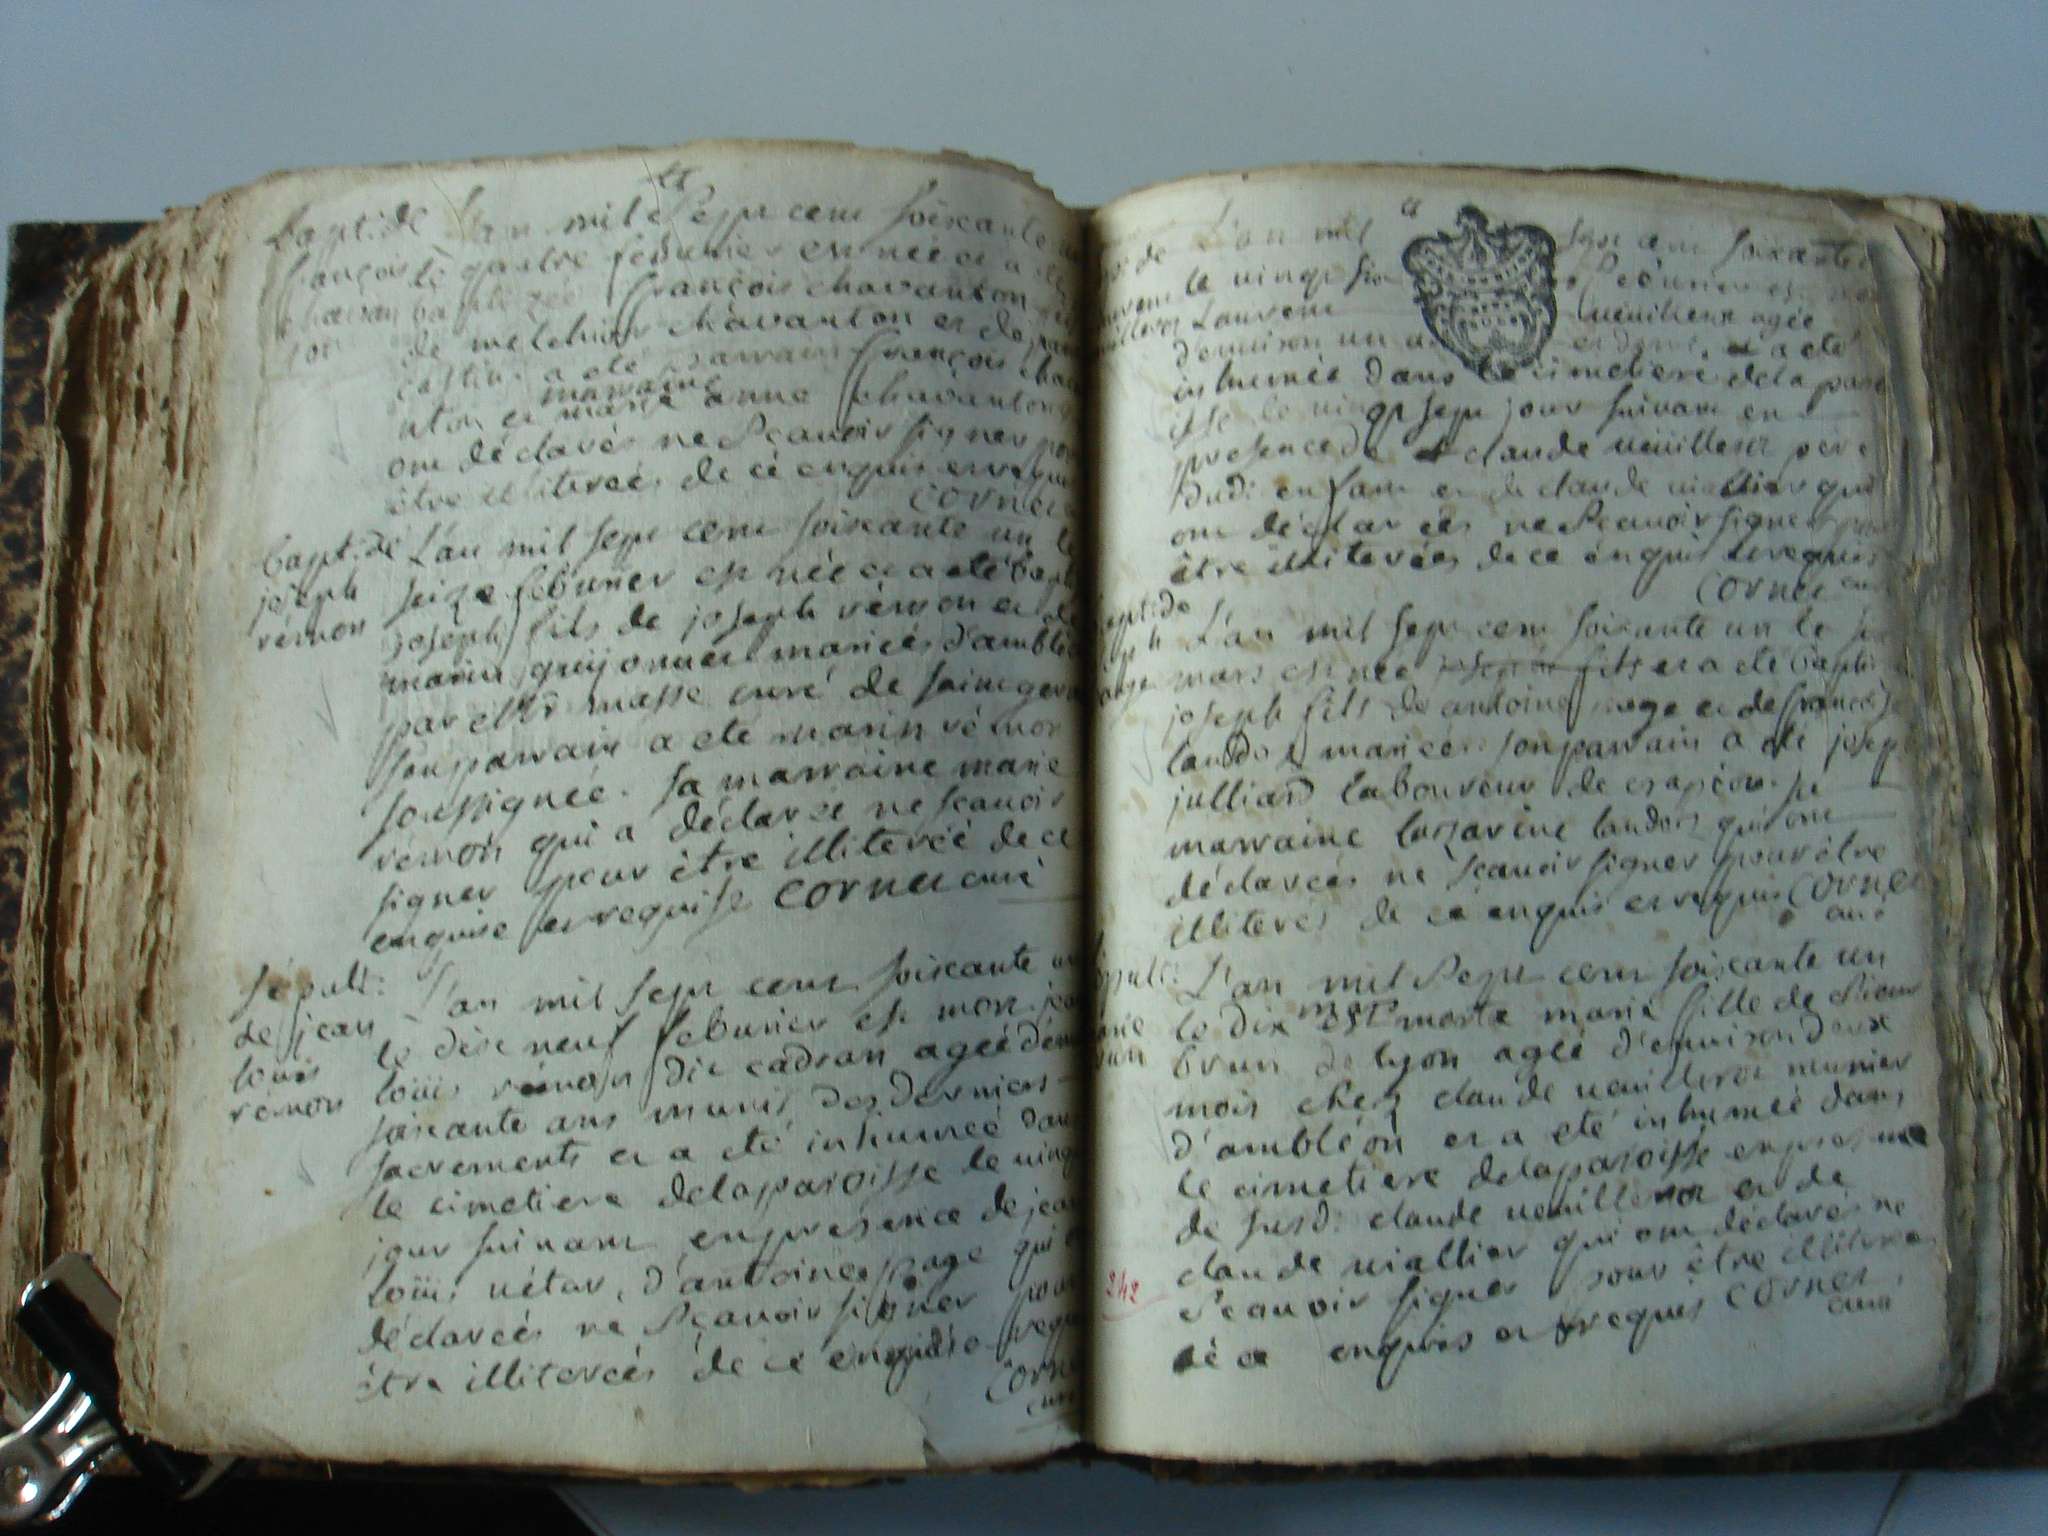 Bapt: de L'an mil sept cent soixante un
françois le quatre februrier est née et a été
chavan baptizéé françois chavanton fils
ton de melchior chavanton et de
a été parrain françois chava
marraine
nton et marie anne chavanton
ont déclarés ne sçavoir signer pour
être illiterés de cé enquis et requis
Cornet
bapt: dé L'an mil sept cent soixante un le
joseph seize februrier est née et a été bapt
rémon joseph fils de joseph rémon et de
marie guijonnet mariés d'amblé
par Mr masse curé de saint ger
son parrain a été marin rémon
soussignéé. sa marraine marie
rémon qui a déclaré ne sçavoir
signer pour être illiteréé de ce
enquise et requise Cornet curé
sépult: L'an mil sept cent soixante un
de jean le dix neuf februrier est mort jean
louis loüis rémon dit cadran ageé d'en
rémon soixante ans munis des derniers
sacrements et a été inhuméé dans
le cimetiere de la paroisse le vingt
jour suivant en presence de jean
loüis nétar, d'antoine page qui
déclaréés ne sçavoir signer pour
être illiteréés dé cé enquis requis
Cornet
curé
de L'an mil sept cent soixante
le vingt six februrier est
Laurent veuilleret ageé
d'environ un a a été
inhuméé dans le cimetiere de la paro
isse le vingt sept jour suivant en
presence de claude veuilleret pere
dud: enfant et de claude viallier qui
ont déclarées ne sçavoir signer pour
être illiteréés de ce enquis et requis
Cornet curé
bapt: de L'an mil sept cent soixante un le
mars est née joseph fils et a été baptisé
joseph fils de antoine page et de françoise
landos mariés son parrain a été joseph
julliard laboureur de crapéon sa
marraine lazarine landos qui ont
déclaréés ne sçavoir signer pour être
illiterés de cé enquis et requis Cornet
curé
sépult: L'an mil sept cent soixante un
marie le dix mars est morte marie fille de
brun brun de lyon ageé d'environ deux
mois chez claude veuilleret munier
d'ambléon et a été inhuméé dans
le cimetiere de la paroisse en presence
de susd: claude veuilleret et de
claude viallier qui ont déclarés ne
242
sçavoir signer pour être illiterées
dé ce enquis et requis Cornet
curé